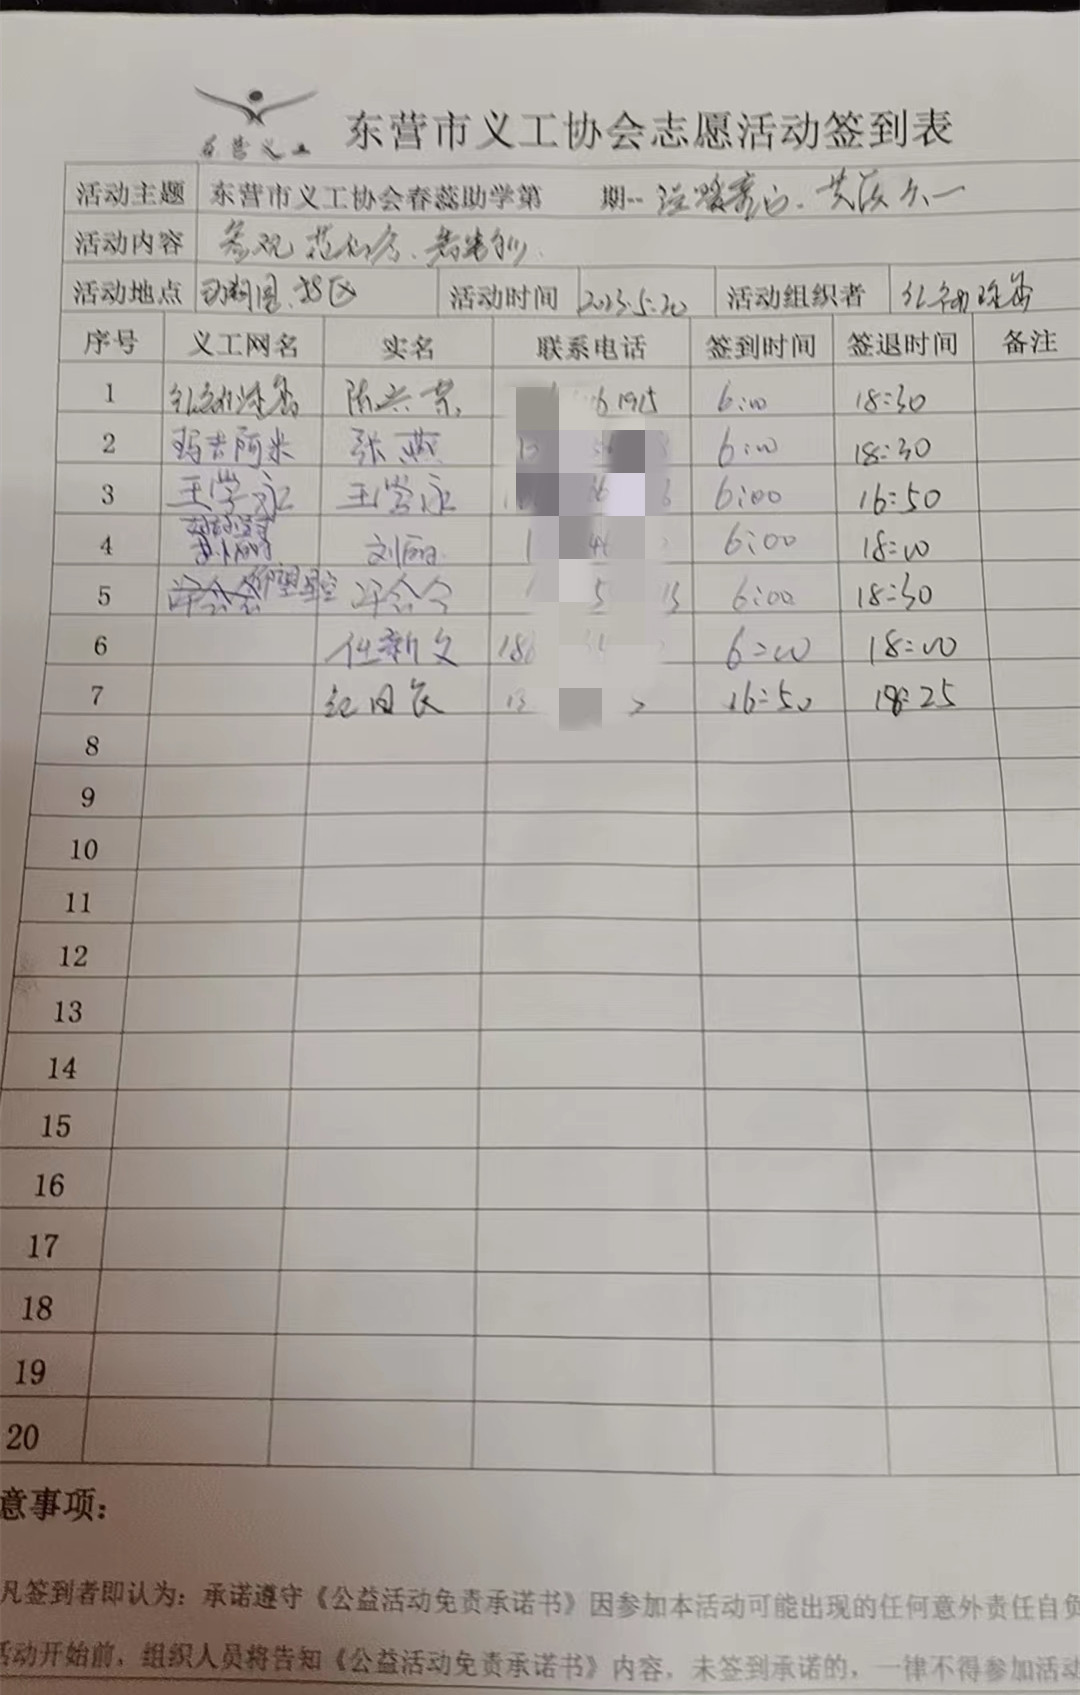 东营义工
东营市义工协会志愿活动签到表
活动主题 东营市义工协会春蕊助学第 期--
活动内容 参观
活动地点 动物园、 活动时间 2023.5.20 活动组织者
序号 义工网名 实名 联系电话 签到时间 签退时间 备注
1 陈兴荣 1915 6:00 18:30
2 玛吉阿米 张燕 6:00 18:30
3 王学永 王学永 6:00 16:50
4 刘丽 6:00 18:00
5 仰望星空 许会令 6:00 18:30
6 任新文 6:00 18:00
7 纪国良 16:50 18:25
8
9
10
11
12
13
14
15
16
17
18
19
20
意事项：
凡签到者即认为：承诺遵守《公益活动免责承诺书》因参加本活动可能出现的任何意外责任自负
活动开始前，组织人员将告知《公益活动免责承诺书》内容，未签到承诺的，一律不得参加活动